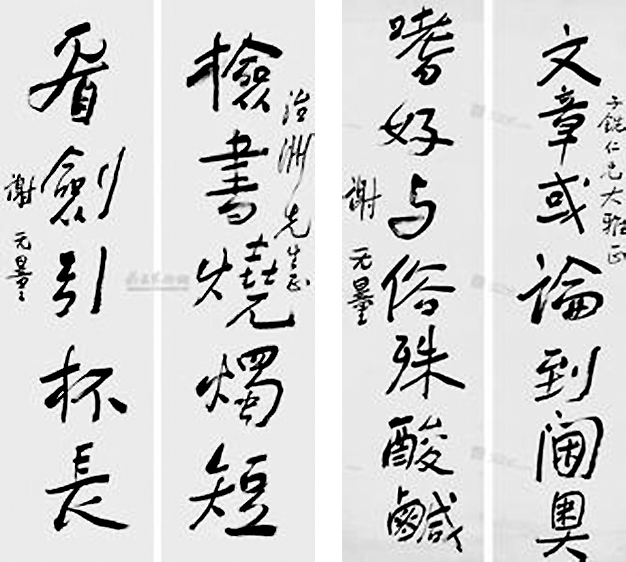 文章或論到閫奧
子銑仁兄大雅正
嗜好与俗殊酸鹹
謝无量
治洲先生正
檢書燒燭短
看劍引杯長
謝无量